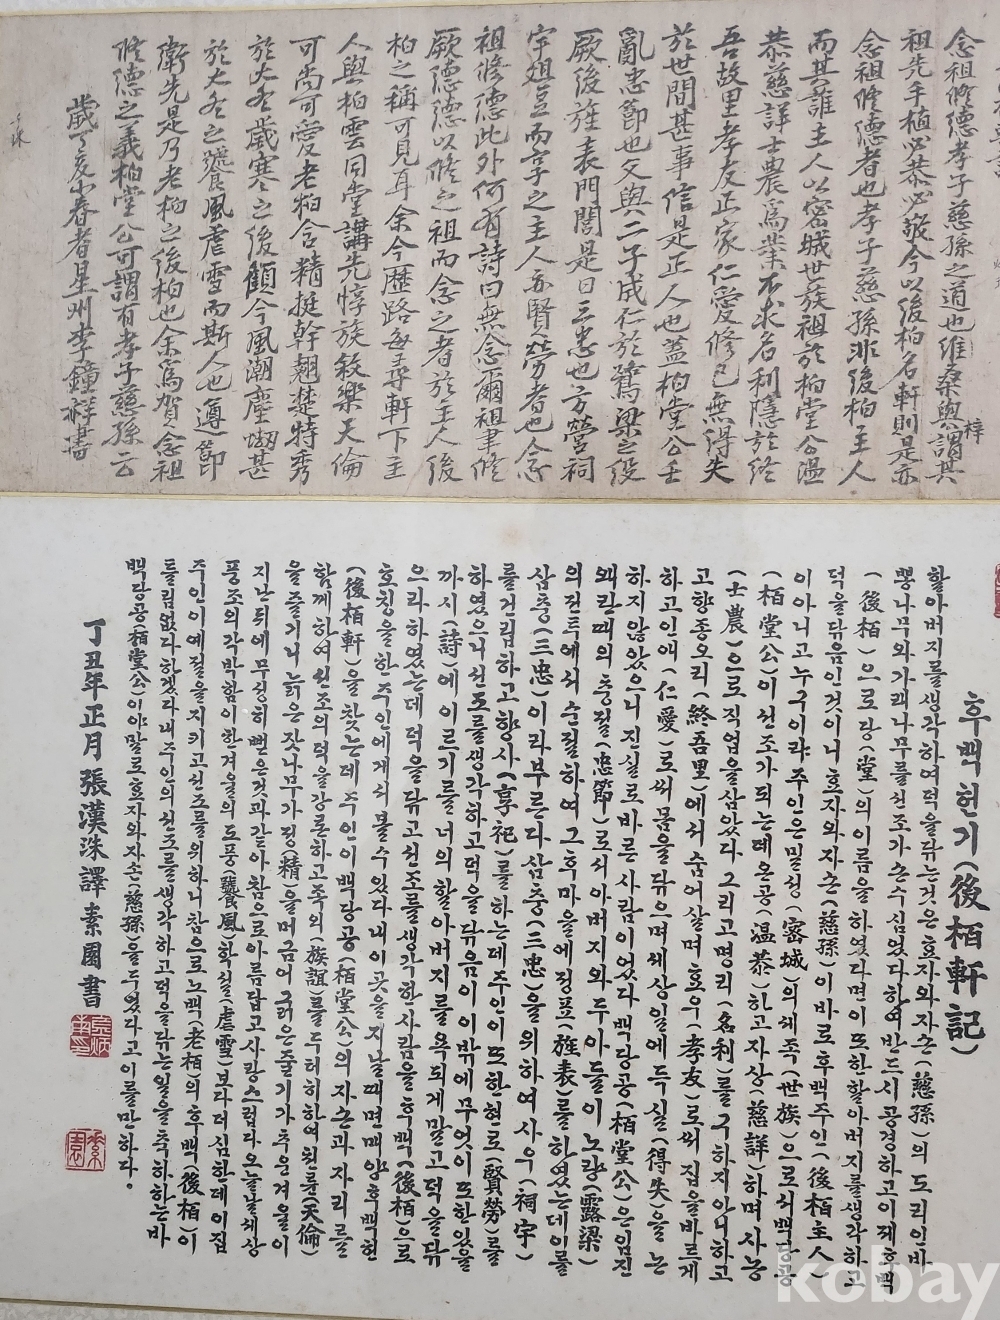 念祖修德孝子慈孫之道也維桑與梓謂其
祖先手植必恭必敬今以後栢名軒則是亦
念祖修德者也孝子慈孫非後栢主人
而其誰主人以密城世族祖於栢堂公溫
恭慈詳士農爲業不求名利隱於終
吾故里孝友正家仁愛修己無得失
於世間甚事信是正人也蓋栢堂公壬
亂忠節也父與二子成仁於鷺梁之役
厥後旌表門閭是曰三忠也方營祠
宇俎豆而享之主人亦賢勞者也念
祖修德此外何有詩曰無念爾祖聿修
厥德德以修之祖而念之者於主人後
栢之稱可見耳余今歷路每尋軒下主
人與栢雲同堂講先惇族敘樂天倫
可尚可愛老栢含精挺幹翹楚特秀
於大冬歲寒之後顧今風潮塵坳甚
於大冬之饕風虐雪而斯人也遵節
衛先是乃老栢之後栢也余爲賀念祖
修德之義栢堂公可謂有孝子慈孫云
歲丁亥小春者星州李鐘祥書
후백헌기(後栢軒記)
할아버지를생각하여덕을닦는것은효자와자손(慈孫)의도리인바
뽕나무와가래나무를선조가손수심었다하여반드시공경하고이제후백
(後栢)으로당(堂)의이름을하였다면이또한할아버지를생각하고
덕을닦음인것이니효자와자손(慈孫)이바로후백주인(後栢主人)
이아니고누구이랴주인은밀성(密城)의세족(世族)으로서백당공
(栢堂公)이선조가되는데온공(温恭)하고자상(慈詳)하며사농
(士農)으로직업을삼았다그리고명리(名利)를구하지아니하고
고향종오리(終吾里)에서숨어살며효우(孝友)로써집을바르게
하고인애(仁愛)로써몸을닦으며세상일에득실(得失)을논
하지않았으니진실로바른사람이었다백당공(栢堂公)은임진
왜란때의충절(忠節)로서아버지와두아들이노량(露梁)
의전투에서순절하여그후마을에정표(旌表)를하였는데이를
삼충(三忠)이라부른다삼충(三忠)을위하여사우(祠宇)
를건립하고향사(享祀)를하는데주인이또한현로(賢勞)를
하였으니선조를생각하고덕을닦음이이밖에무엇이또한있을
까시(詩)에이르기를너의할아버지를욕되게말고덕을닦
으라하였는데덕을닦고선조를생각한사람을후백(後栢)으로
호칭을한주인에게서볼수있다내이곳을지날때면매양후백헌
(後栢軒)을찾는데주인이백당공(栢堂公)의자손과자리를
함께하여선조의덕을강론하고족의(族誼)를두터히하여천륜(天倫)
을즐기니늙은잣나무가정(精)을머금어굵은줄기가추운겨울이
지난뒤에무성히뻗은것과같아참으로아름답고사랑스럽다오늘날세상
풍조의각박함이한겨울의도풍(饕風)학설(虐雪)보다더심한데이집
주인이예절을지키고선조를위하니참으로노백(老栢의후백(後栢)이
틀림없다하겠다내주인의선조를생각하고덕을닦는일을축하하는바
백당공栢堂公)이야말로효자와자손(慈孫)을두었다고이를만하다.
丁丑年正月張漢洙譯素園書
素園
kobay